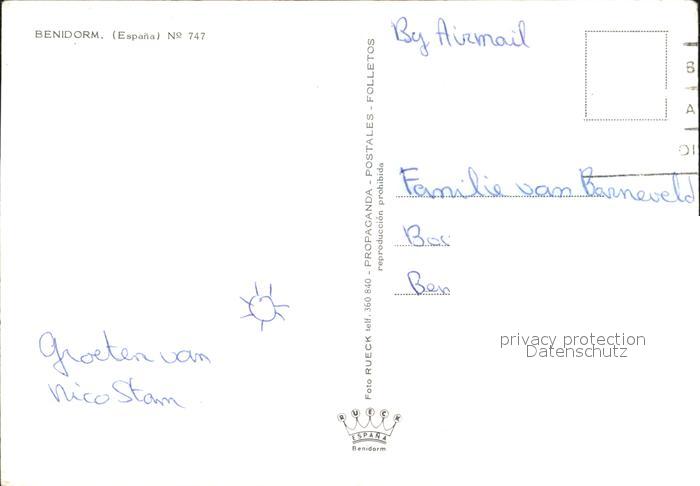 BENIDORM. (España) Nº 747
By Airmail
B
A
Familie van Barneveld
Ben
Groeten van
Nico Stam
Foto RUECK telf. 360 840 - PROPAGANDA - POSTALES - FOLLETOS
reproducción prohibida
RUECK
ESPAÑA
Benidorm
privacy protection
Datenschutz